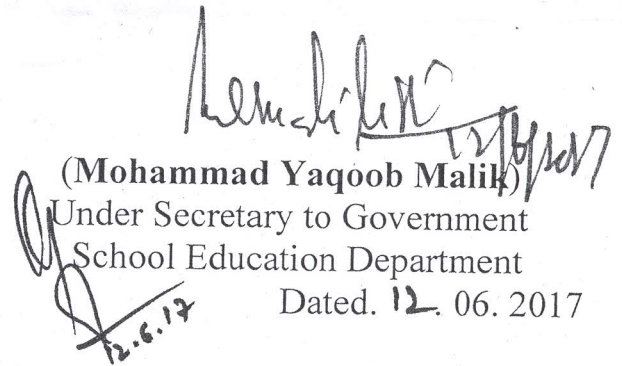 12/6/2017
(Mohammad Yaqoob Malik)
Under Secretary to Government
School Education Department
Dated. 12. 06. 2017
12.6.17